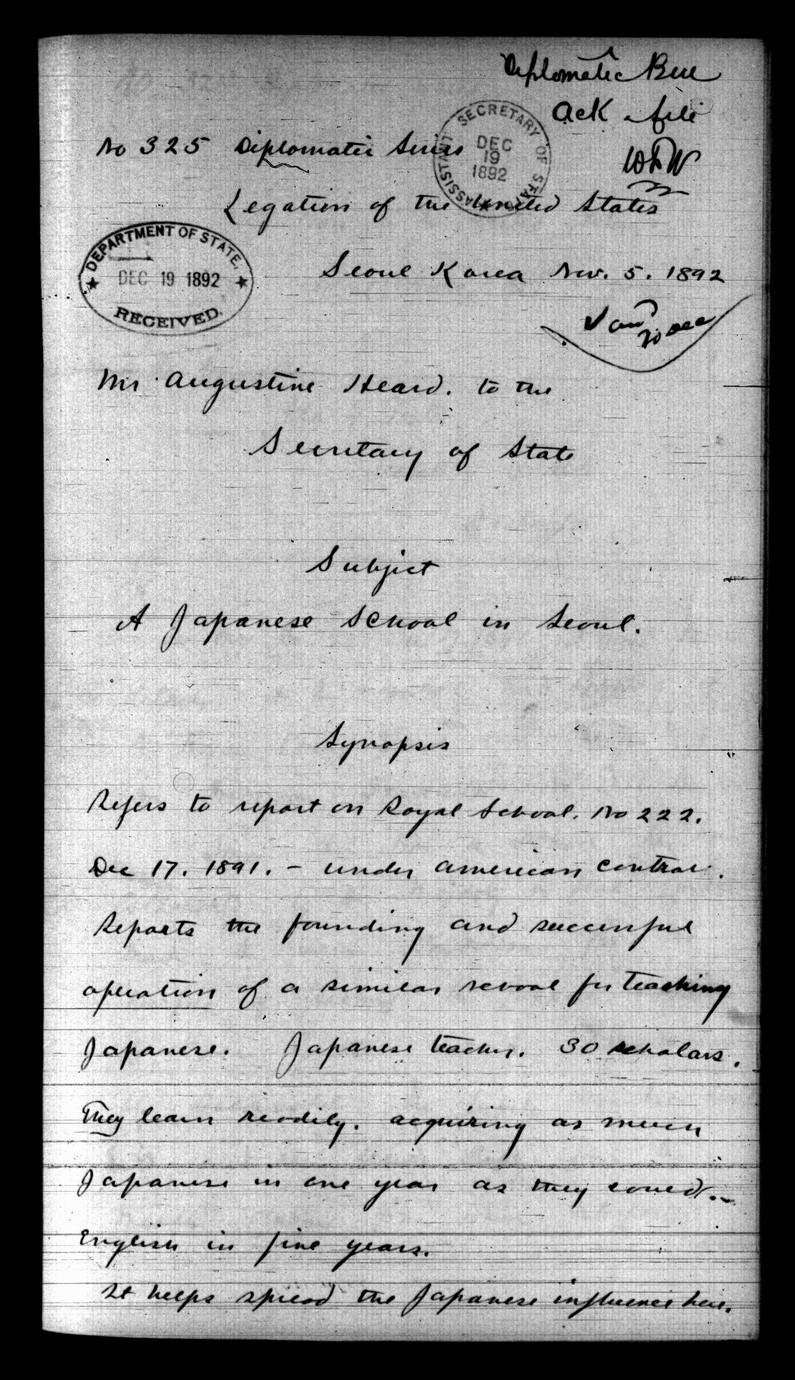 Diplomatic Bureau
Ack & file
WFW
No 325 Diplomatic Series
ASSISTANT SECRETARY OF STATE
DEC
19
1892
Legation of the United States
DEPARTMENT OF STATE.
DEC 19 1892
RECEIVED.
Seoul Korea Nov. 5. 1892
20 Dec
Mr Augustine Heard. to the
Secretary of State
Subject
A Japanese School in Seoul.
Synopsis
Refers to report on Royal School. No 222.
Dec 17. 1891. - under American control.
Reports the founding and successful
operation of a similar school for teaching
Japanese. Japanese teacher. 30 scholars.
They learn readily. acquiring as much
Japanese in one year as they could
English in five years.
It helps spread the Japanese influence here.